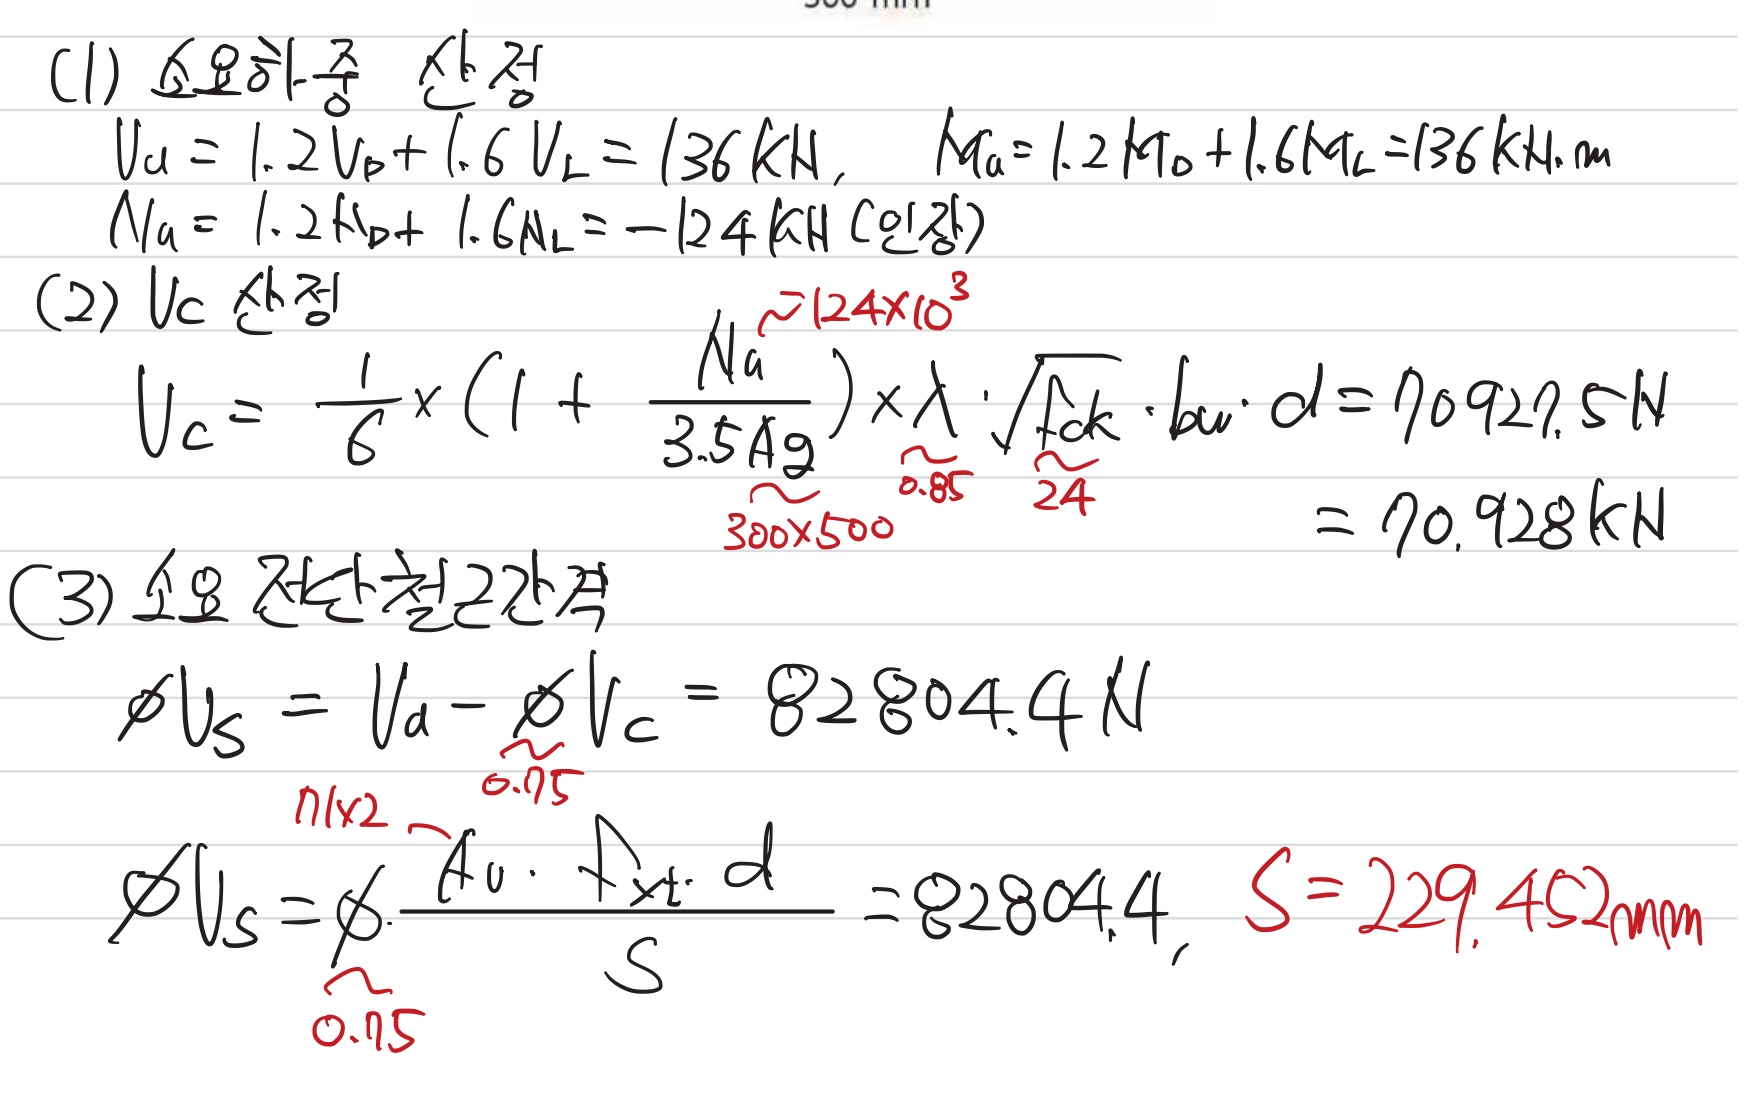 300 mm
(1) 소요하중 산정
Vu = 1.2VD + 1.6VL = 136kN, Mu = 1.2MD + 1.6ML = 136kN.m
Nu = 1.2ND + 1.6NL = -124kN (인장)
(2) Vc 산정
-124×10³
Vc = 1/6 × (1 + Nu/3.5Ag) × λ·√fck·bw·d = 70927.5N
0.85 24
300×500
= 70.928kN
(3) 소요 전단철근간격
øVs = Vu - øVc = 82804.4N
0.75
71×2
øVs = ø·Av·fyt·d/S = 82804.4, S = 229.452mm
0.75